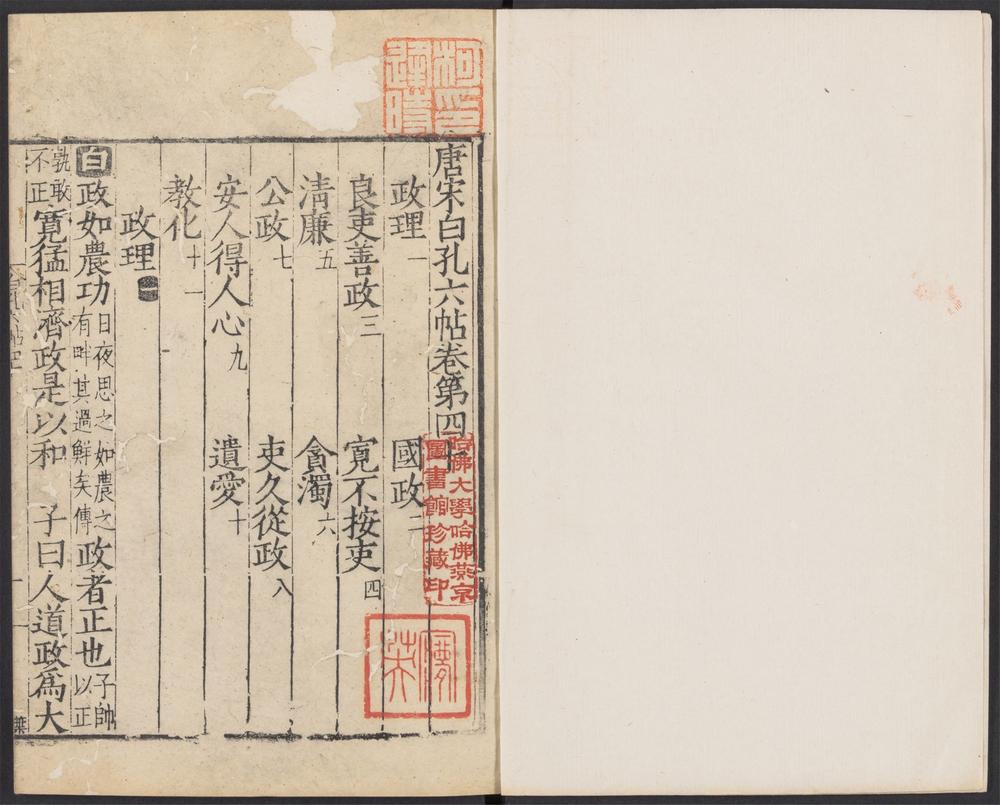 唐宋白孔六帖卷第四十
政理一 國政二
良吏善政三 寛不按吏四
清廉五 貪濁六
公政七 吏久從政八
安人得人心九 遺愛十
教化十一
政理一
白政如農功日夜思之如農之有畔其過鮮矣傳政者正也子帥以正
孰敢不正寛猛相濟政是以和 子曰人道政爲大
哈佛大學哈佛燕京
圖書館珍藏印
柯逢時印
葉